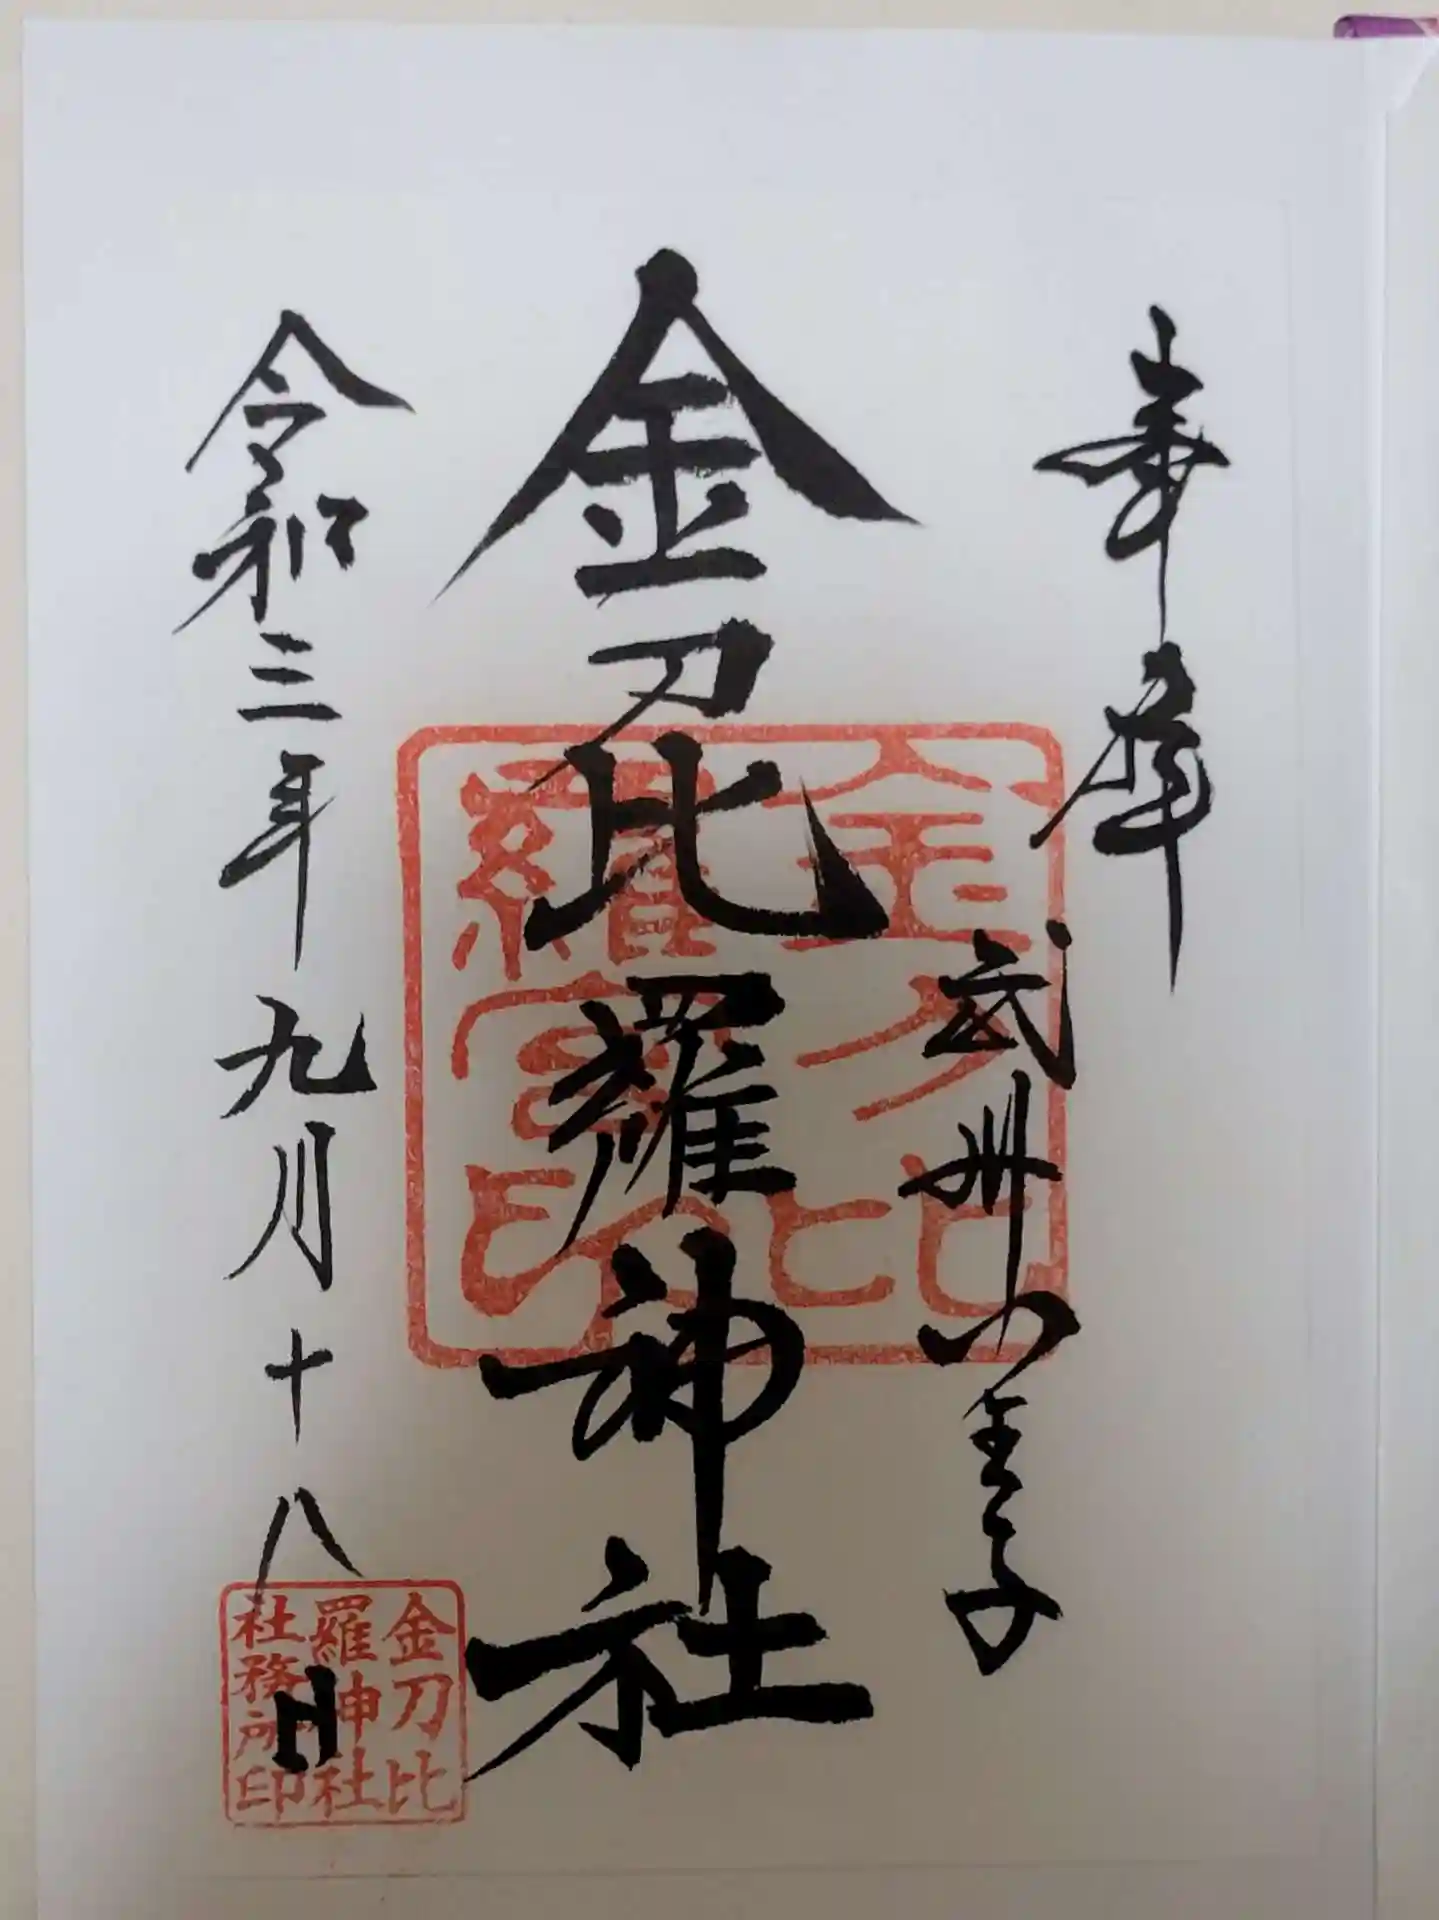 奉拝
武州小金子
金刀比羅神社
令和三年九月十八日
金刀比
羅宮印
金刀比
羅神社
社務所印